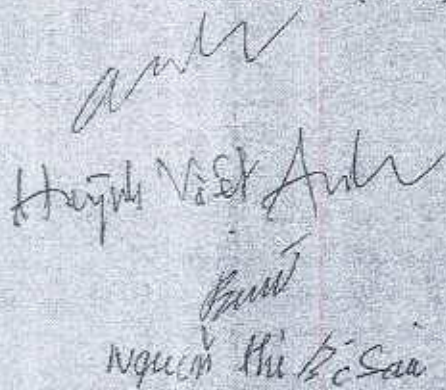 anh
Huỳnh Việt Anh
Nguyễn Thị Sáu